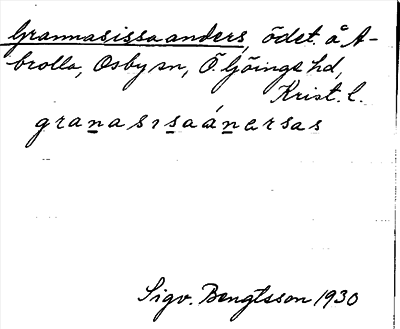 Grannasissaanders, ödet. å A-
brolla, Osby sn, Ö Göinge hd,
Krist. l.
granasısaánarsas
Sigv. Bengtsson 1930